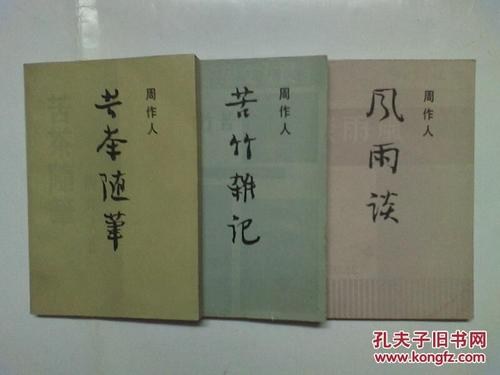 周作人
苦茶随筆
周作人
苦竹杂记
周作人
风雨谈
孔夫子旧书网
www.kongfz.com